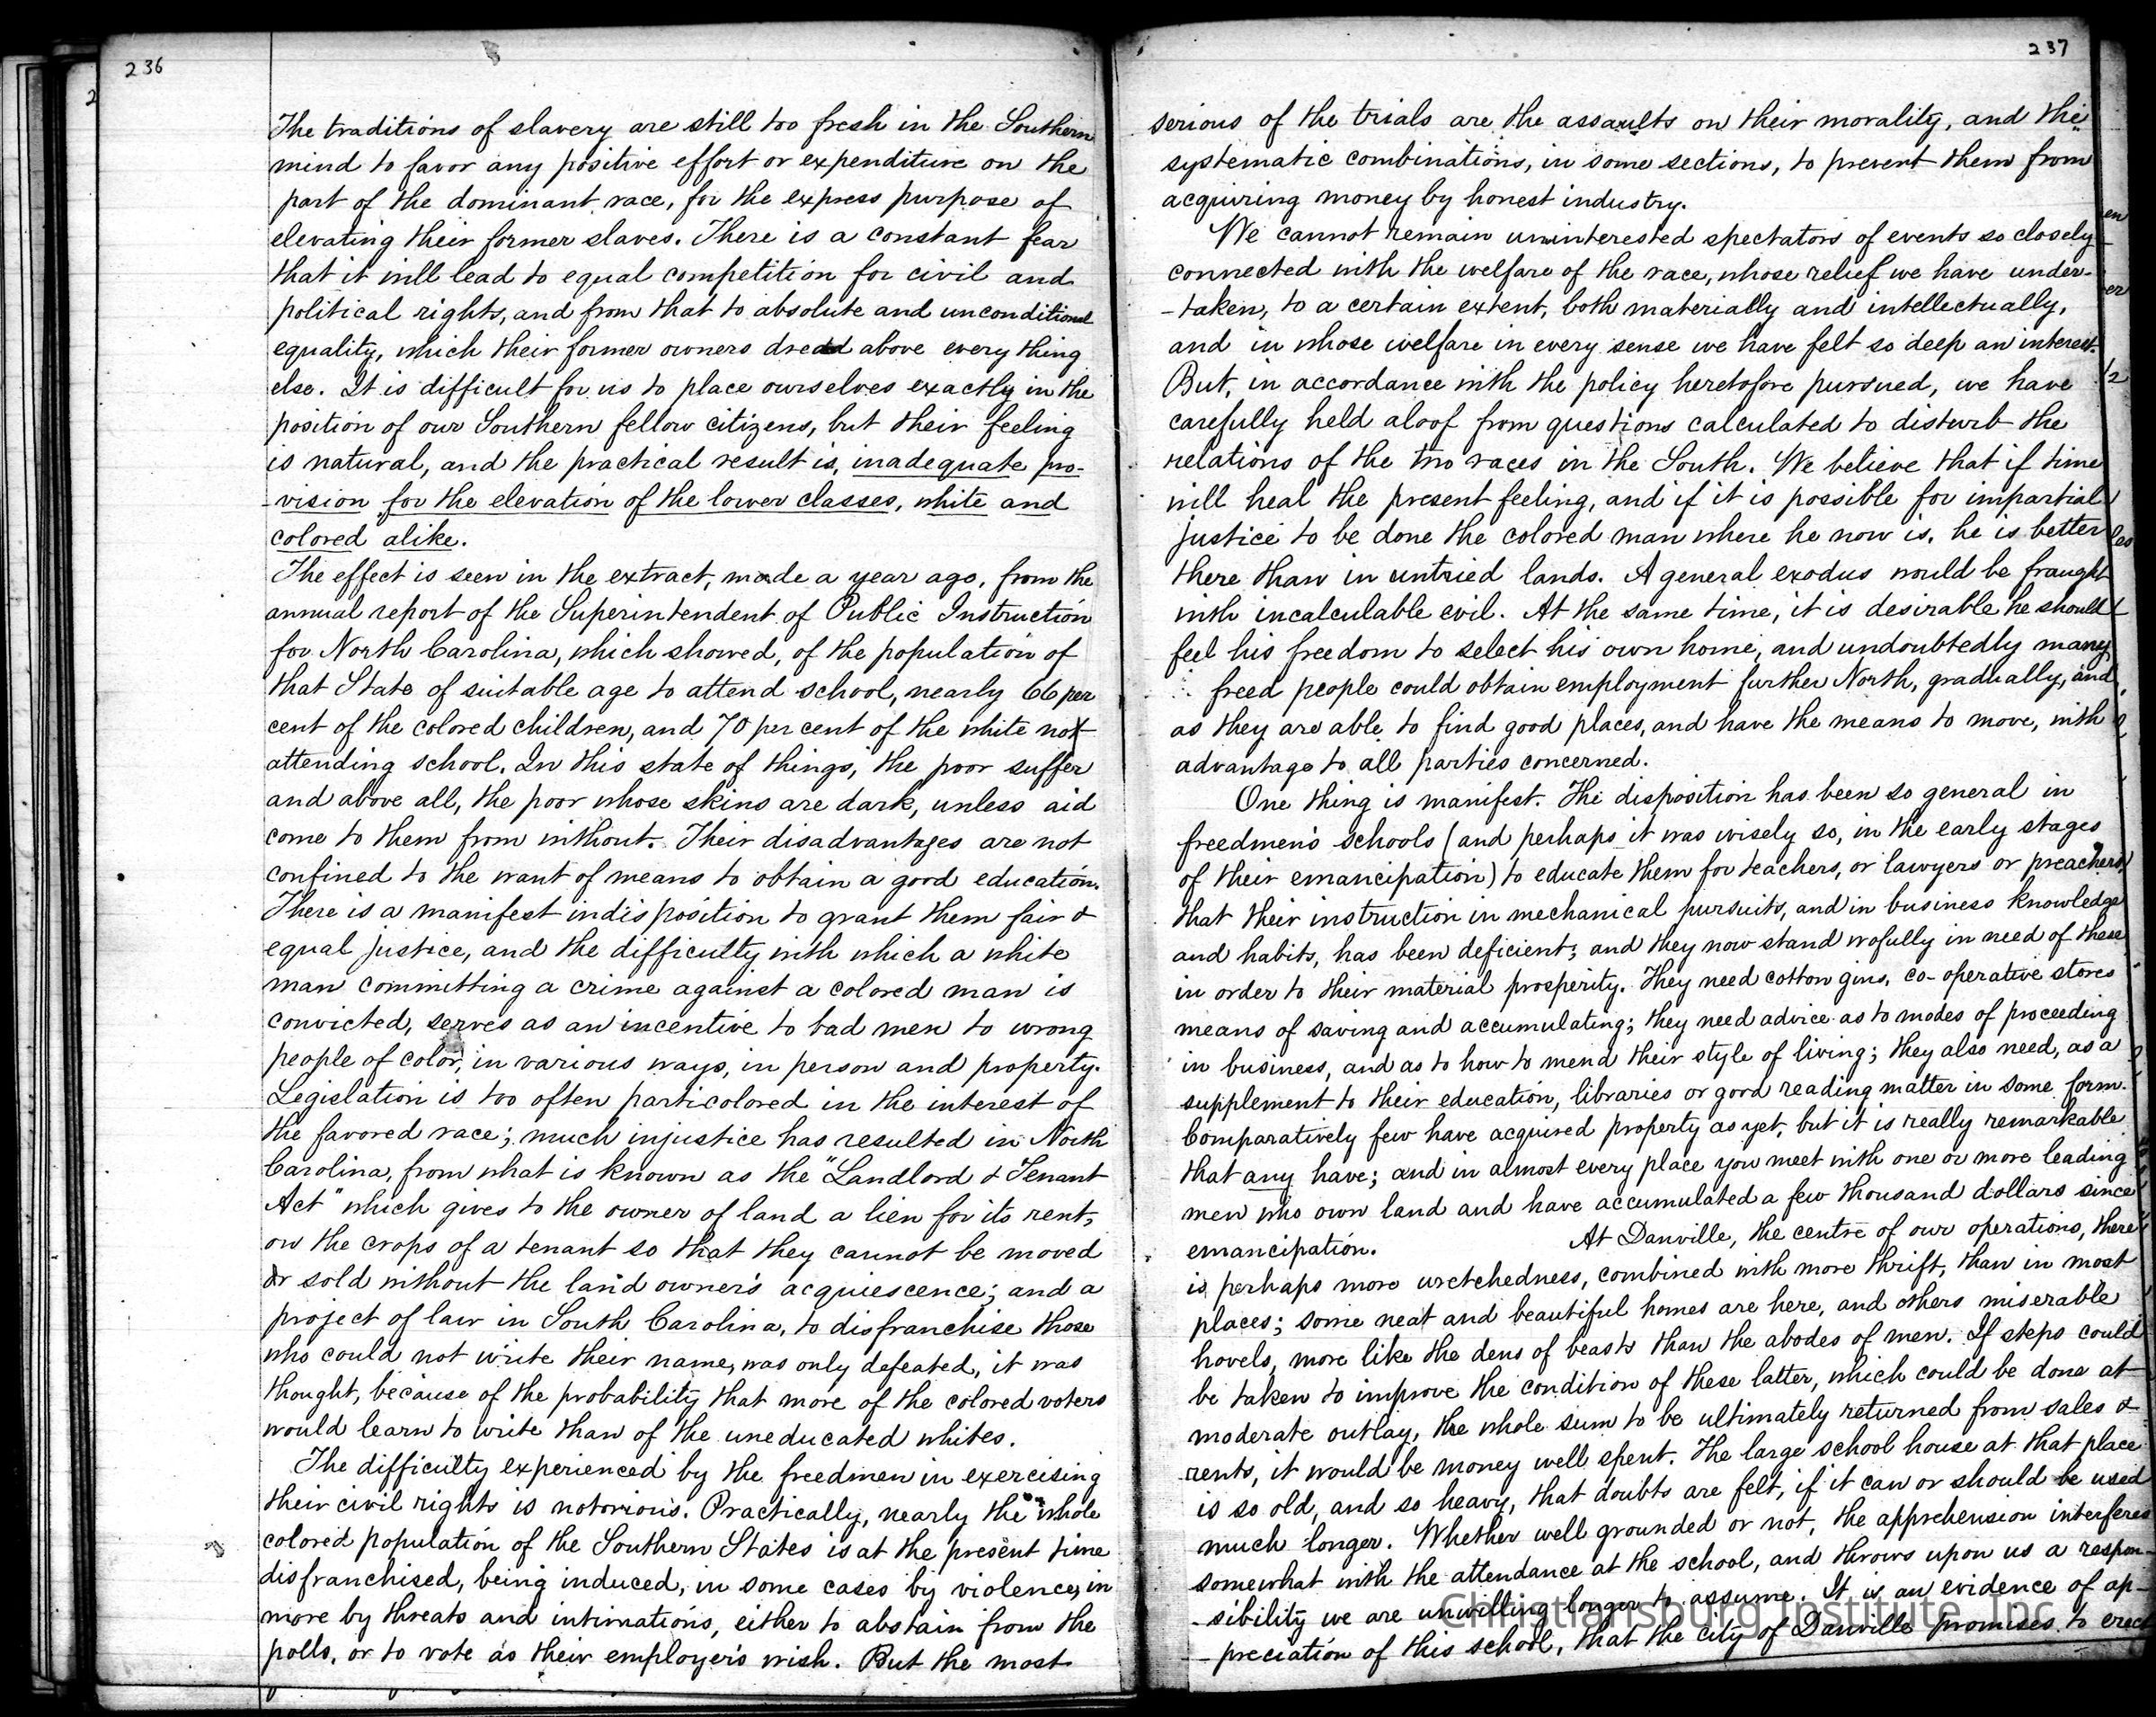 236
The traditions of slavery are still too fresh in the Southern
mind to favor any positive effort or expenditure on the
part of the dominant race, for the express purpose of
elevating their former slaves. There is a constant fear
that it will lead to equal competition for civil and
political rights, and from that to absolute and unconditional
equality, which their former owners dread above every thing
else. It is difficult for us to place ourselves exactly in the
position of our Southern fellow citizens, but their feeling
is natural, and the practical result is, inadequate pro-
-vision for the elevation of the lower classes, white and
colored alike.
The effect is seen in the extract, made a year ago, from the
annual report of the Superintendent of Public Instruction
for North Carolina, which showed, of the population of
that State of suitable age to attend school, nearly 66 per
cent of the colored children, and 70 per cent of the white not
attending school. In this state of things, the poor suffer
and above all, the poor whose skins are dark, unless aid
come to them from without. Their disadvantages are not
confined to the want of means to obtain a good education.
There is a manifest indisposition to grant them fair &
equal justice, and the difficulty with which a white
man committing a crime against a colored man is
convicted, serves as an incentive to bad men to wrong
people of color, in various ways, in person and property.
Legislation is too often particolored in the interest of
the favored race; much injustice has resulted in North
Carolina, from what is known as the "Landlord & Tenant
Act" which gives to the owner of land a lien for its rent,
on the crops of a tenant so that they cannot be moved
or sold without the land owner's acquiescence; and a
project of law in South Carolina, to disfranchise those
who could not write their name, was only defeated, it was
thought, because of the probability that more of the colored voters
would learn to write than of the uneducated whites.
The difficulty experienced by the freedmen in exercising
their civil rights is notorious. Practically, nearly the whole
colored population of the Southern States is at the present time
disfranchised, being induced, in some cases by violence, in
more by threats and intimations, either to abstain from the
polls, or to vote as their employers wish. But the most
237
serious of the trials are the assaults on their morality, and the
systematic combinations, in some sections, to prevent them from
acquiring money by honest industry.
We cannot remain uninterested spectators of events so closely
connected with the welfare of the race, whose relief we have under-
-taken, to a certain extent, both materially and intellectually,
and in whose welfare in every sense we have felt so deep an interest.
But, in accordance with the policy heretofore pursued, we have
carefully held aloof from questions calculated to disturb the
relations of the two races in the South. We believe that if time
will heal the present feeling, and if it is possible for impartial
justice to be done the colored man where he now is, he is better
there than in untried lands. A general exodus would be fraught
with incalculable evil. At the same time, it is desirable he should
feel his freedom to select his own home, and undoubtedly many
freed people could obtain employment further North, gradually, and
as they are able to find good places, and have the means to move, with
advantage to all parties concerned.
One thing is manifest. The disposition has been so general in
freedmen's schools (and perhaps it was wisely so, in the early stages
of their emancipation) to educate them for teachers, or lawyers or preachers,
that their instruction in mechanical pursuits, and in business knowledge
and habits, has been deficient; and they now stand wofully in need of these
in order to their material prosperity. They need cotton gins, co-operative stores
means of saving and accumulating; they need advice as to modes of proceeding
in business, and as to how to mend their style of living; they also need, as a
supplement to their education, libraries or good reading matter in some form.
Comparatively few have acquired property as yet, but it is really remarkable
that any have; and in almost every place you meet with one or more leading
men who own land and have accumulated a few thousand dollars since
emancipation. At Danville, the centre of our operations, there
is perhaps more wretchedness, combined with more thrift, than in most
places; some neat and beautiful homes are here, and others miserable
hovels, more like the dens of beasts than the abodes of men. If steps could
be taken to improve the condition of these latter, which could be done at
moderate outlay, the whole sum to be ultimately returned from sales &
rents, it would be money well spent. The large school house at that place
is so old, and so heavy, that doubts are felt, if it can or should be used
much longer. Whether well grounded or not, the apprehension interferes
somewhat with the attendance at the school, and throws upon us a respon-
-sibility we are unwilling longer to assume. It is an evidence of ap-
-preciation of this school, that the city of Danville promises to erect
Christiansburg Institute, Inc